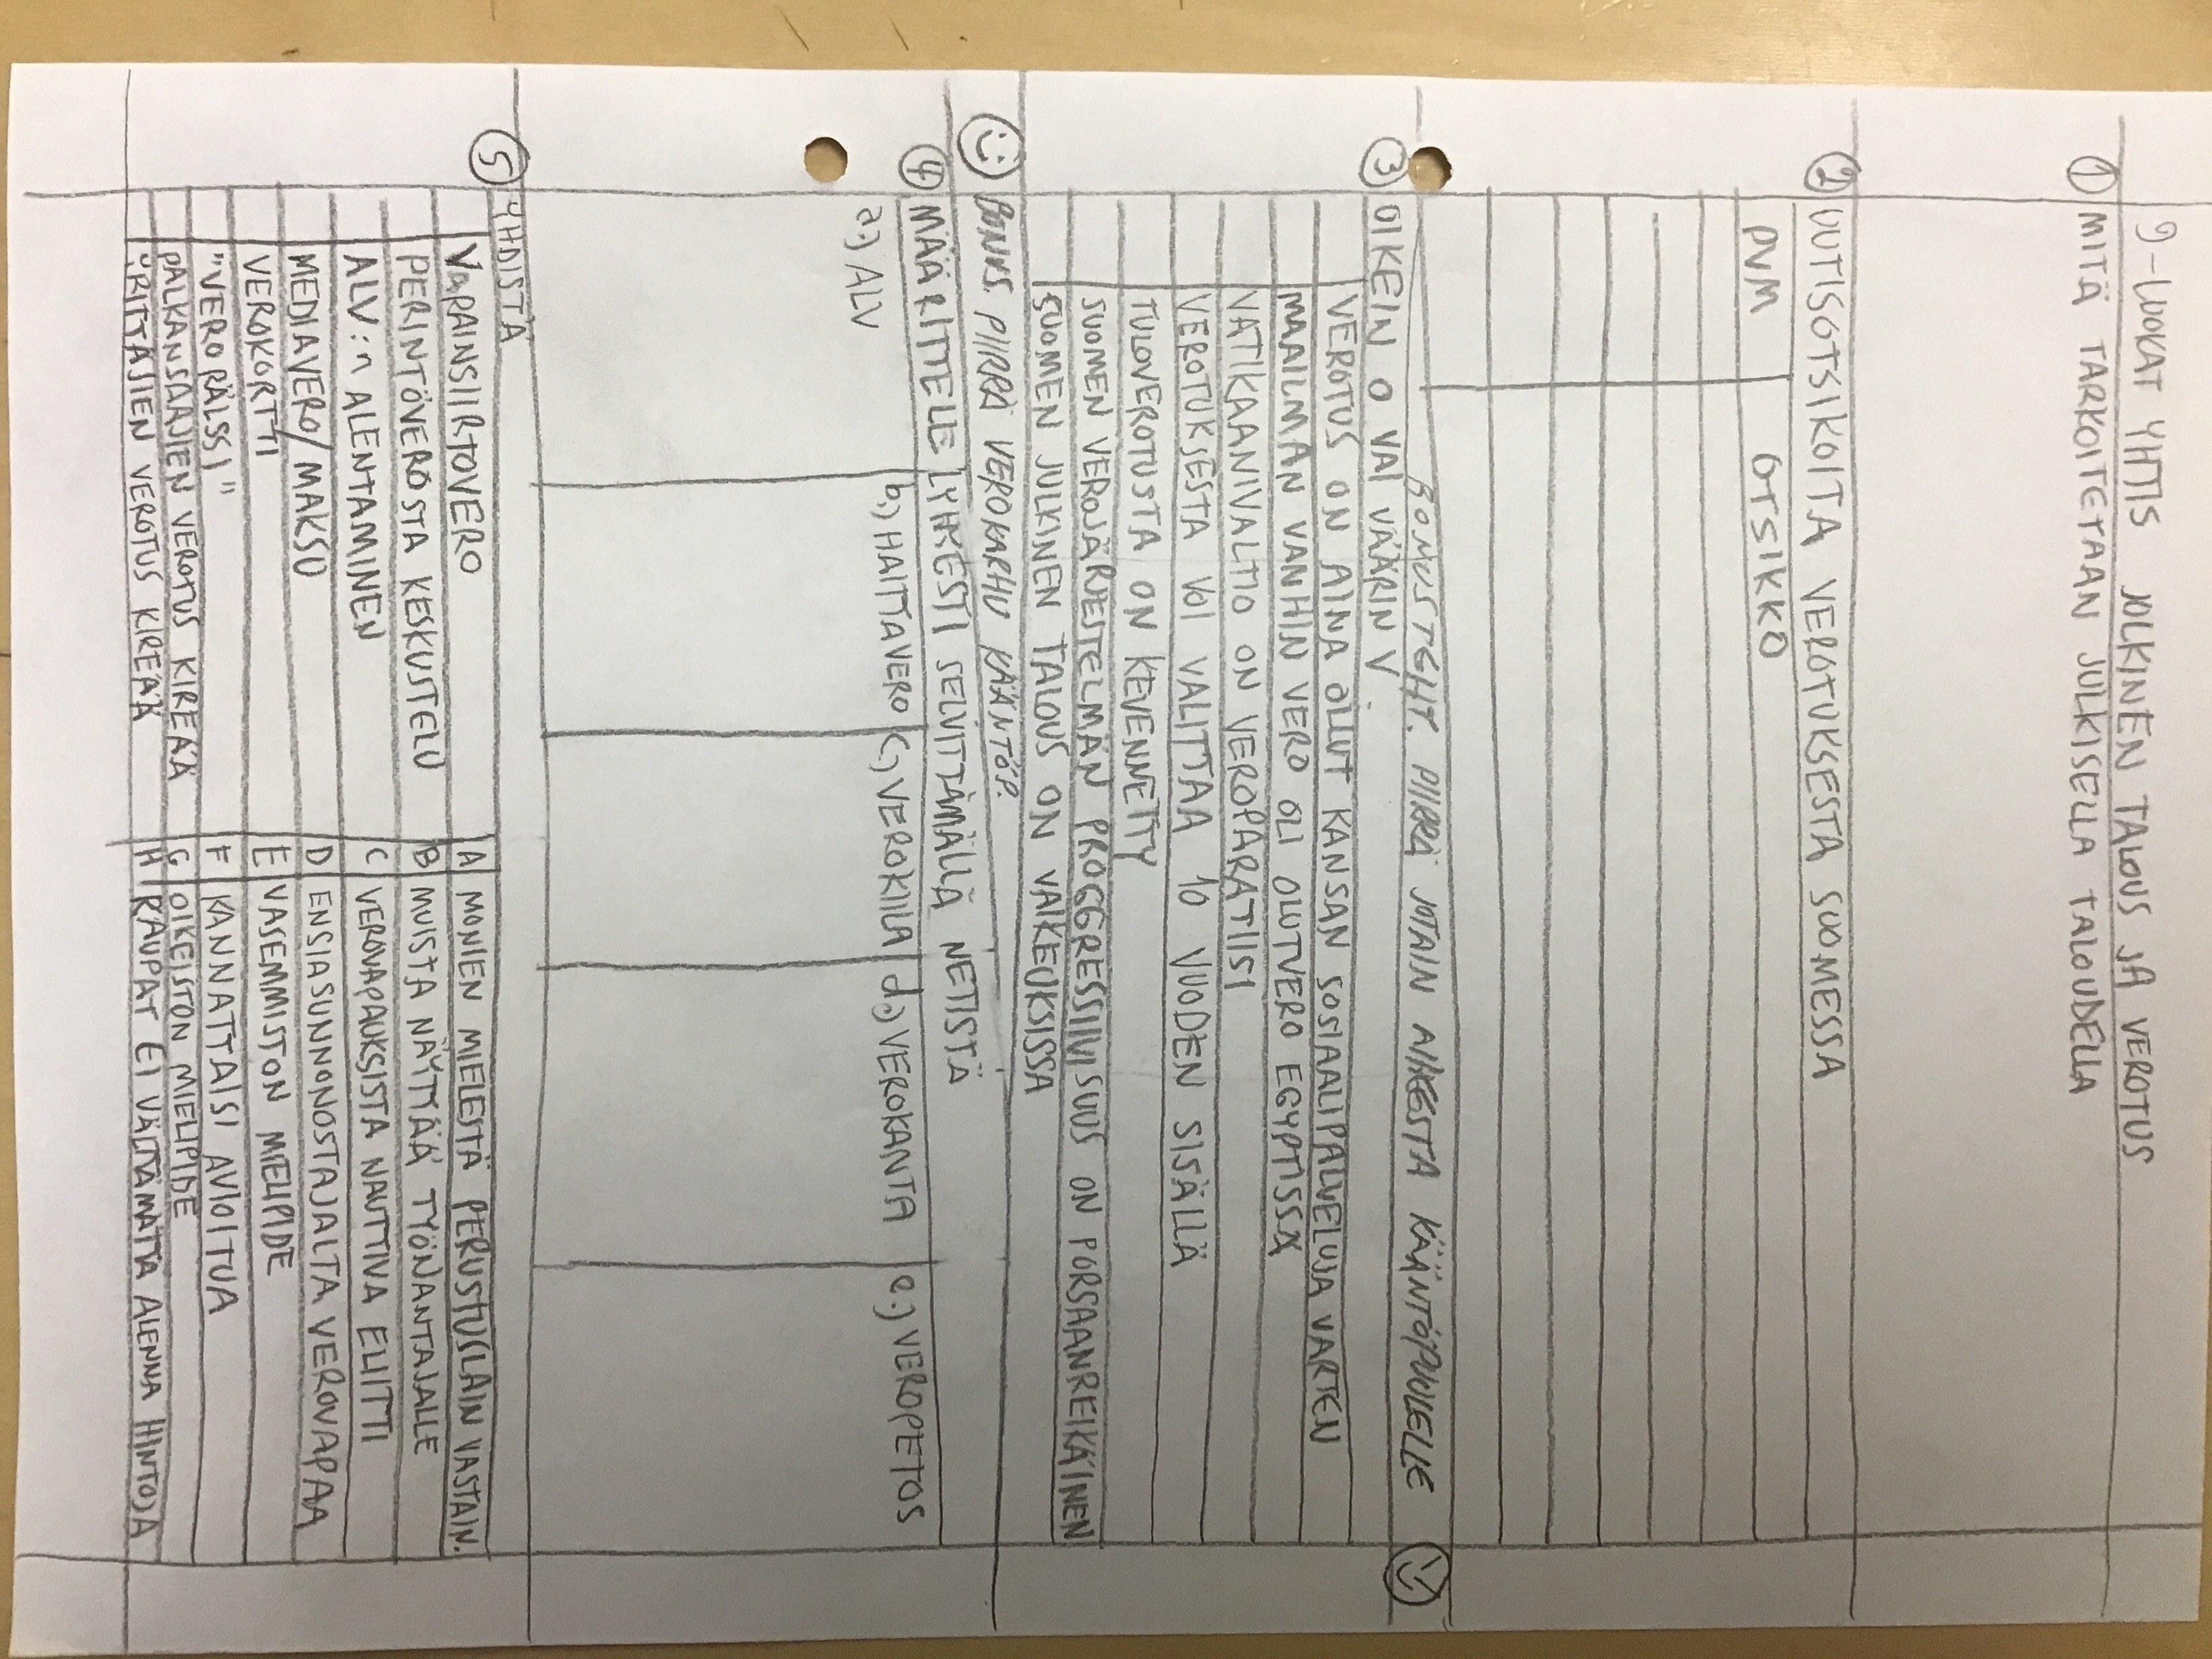 9-LUOKAT YHTIS JULKINEN TALOUS JA VEROTUS
① MITÄ TARKOITETAAN JULKISELLA TALOUDELLA
② UUTISOTSIKOITA VEROTUKSESTA SUOMESSA
PVM OTSIKKO
BONUSTEHT. PIIRRÄ JOTAIN AIHEESTA KÄÄNTÖPUOLELLE
③ OIKEIN O VAI VÄÄRIN V
VEROTUS ON AINA OLLUT KANSAN SOSIAALIPALVELUJA VARTEN
MAAILMAN VANHIN VERO OLI OLUTVERO EGYPTISSÄ
VATIKAANIVALTIO ON VEROPARATIISI
VEROTUKSESTA VOI VALITTAA 10 VUODEN SISÄLLÄ
TULOVEROTUSTA ON KEVENNETTY
SUOMEN VEROJÄRJESTELMÄN PROGGRESSIIVISUUS ON PORSAANREIKÄINEN
SUOMEN JULKINEN TALOUS ON VAIKEUKSISSA
BONUS. PIIRRÄ VEROKARHU KÄÄNTÖP.
④ MÄÄRITTELE LYHYESTI SELVITTÄMÄLLÄ NETISTÄ
a.) ALV b.) HAITTAVERO c.) VEROKIILA d.) VEROKANTA e.) VEROPETOS
⑤ YHDISTÄ
VARAINSIIRTOVERO A MONIEN MIELESTÄ PERUSTUSLAIN VASTAIN.
PERINTÖVEROSTA KESKUSTELU B MUISTA NÄYTTÄÄ TYÖNANTAJALLE
ALV:n ALENTAMINEN C VEROVAPAUKSISTA NAUTTIVA ELIITTI
MEDIAVERO/MAKSU D ENSIASUNNONOSTAJALTA VEROVAPAA
VEROKORTTI E VASEMMISTON MIELIPIDE
"VERORÄLSSI" F KANNATTAISI AVIOITUA
PALKANSAAJIEN VEROTUS KIREÄÄ G OIKEISTON MIELIPIDE
YRITTÄJIEN VEROTUS KIREÄÄ H KAUPAT EI VÄLTTÄMÄTTÄ ALENNA HINTOJA